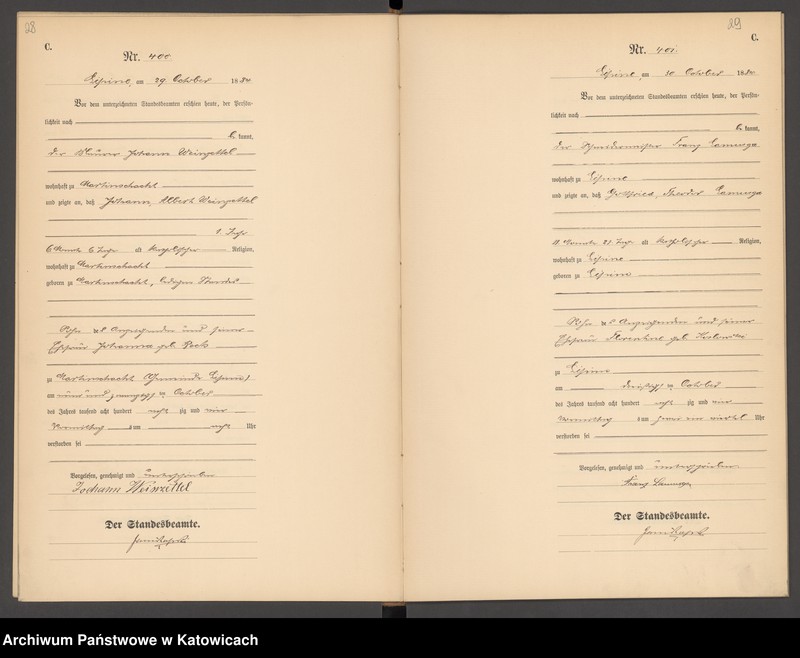 28
C.
Nr. 400
Lipine, am 29 October 1884
Vor dem unterzeichneten Standesbeamten erschien heute, der Persön-
lichkeit nach
be kannt,
der Johann Weinzettel
wohnhaft zu Martinschacht
und zeigte an, daß Johann Albert Weinzettel
1 Jahr
6 Monate 6 Tage alt katholischer Religion,
wohnhaft zu Martinschacht
geboren zu Martinschacht, ledigen Standes
Sohn des Anzeigenden und seiner
Ehefrau Johanna geb.
zu Martinschacht Gemeinde Lipine
am neun und zwanzigsten October
des Jahres tausend acht hundert acht zig und vier
Vormittag s um acht Uhr
verstorben sei
Vorgelesen, genehmigt und unterschrieben
Johann Weinzettel
Der Standesbeamte.
29
C.
Nr. 401
Lipine, am 30 October 1884
Vor dem unterzeichneten Standesbeamten erschien heute, der Persön-
lichkeit nach
be kannt,
der Schneidermeister Franz
wohnhaft zu Lipine
und zeigte an, daß Gottfried, Theodor
11 Monate 21 Tage alt katholischer Religion,
wohnhaft zu Lipine
geboren zu Lipine
Sohn des Anzeigenden und seiner
Ehefrau Florentine geb.
zu Lipine
am dreißigsten October
des Jahres tausend acht hundert acht zig und vier
Vormittag s um ein viertel Uhr
verstorben sei
Vorgelesen, genehmigt und unterschrieben
Franz
Der Standesbeamte.
Archiwum Państwowe w Katowicach